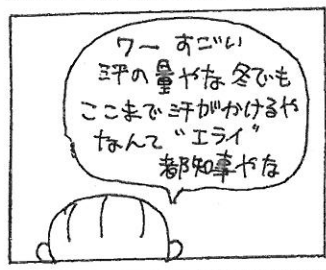 ワー すごい
汗の量やな 冬でも
ここまで汗がかけるや
なんて “エライ”
都知事やな